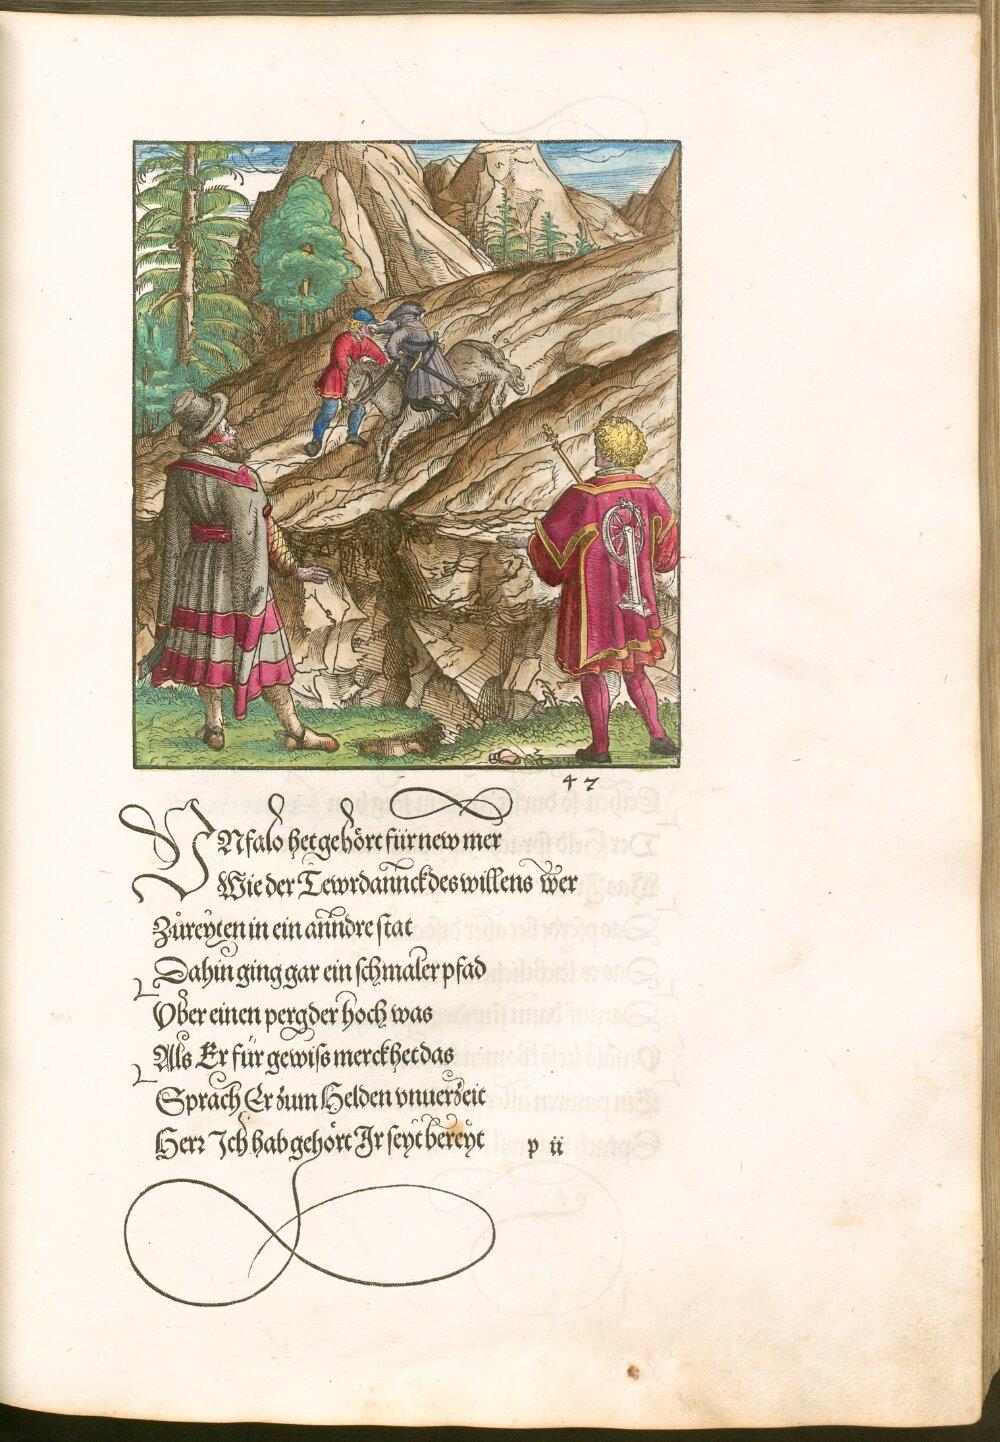 47
VNfalo het gehört für new mer
Wie der Tewrdannck des willens wer
Zůreyten in ein anndre stat
Dahin ging gar ein schmaler pfad
Vber einen perg der hoch was
Als Er für gewiss merckhet das
Sprach Er zum Helden vnuerzeit
Herr Ich hab gehört Ir seyt bereyt
p ii